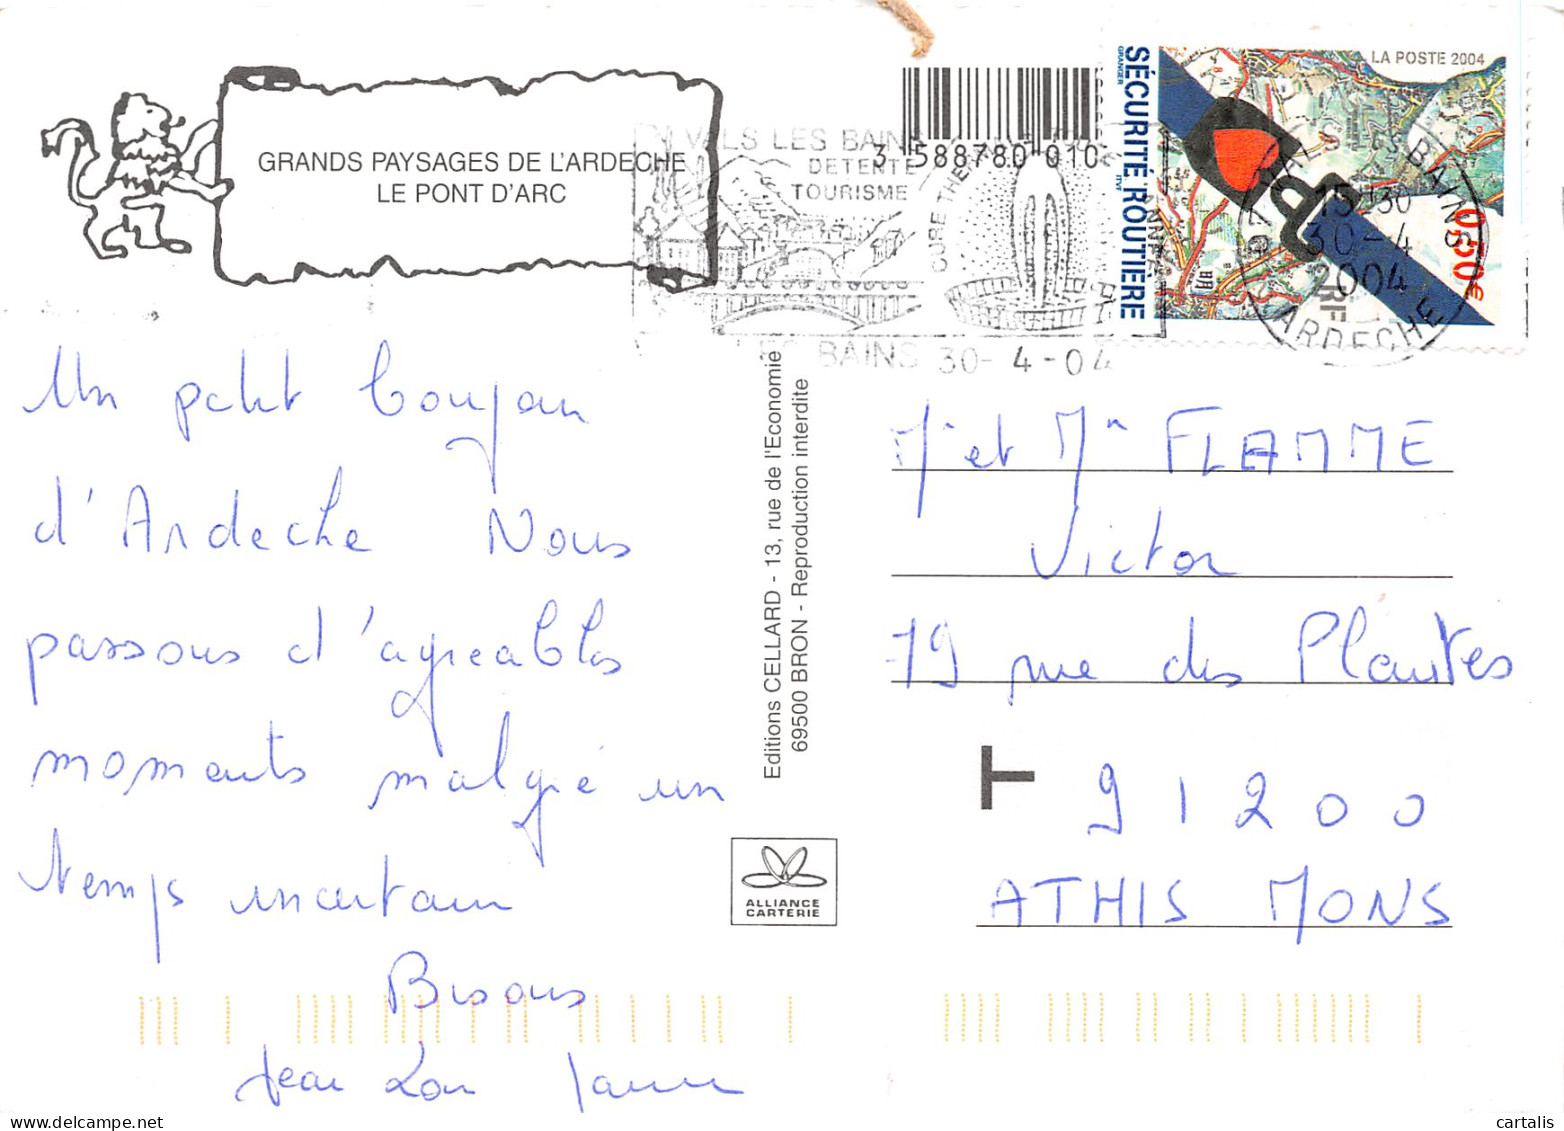 GRANDS PAYSAGES DE L'ARDECHE
LE PONT D'ARC
3 588780 010
LA POSTE 2004
SÉCURITÉ ROUTIÈRE
GRANGER
ITVF
0,50€
RF
VALS LES BAINS
DETENTE
TOURISME
CURE THER
LES BAINS 30-4-04
VALS LES BAINS
15H30
30-4
2004
ARDECHE
Un petit bonjour
d'Ardeche Nous
passons d'agreables
moments malgré un
temps incertain
Bisous
Jean Lou
Editions CELLARD - 13, rue de l'Economie
69500 BRON - Reproduction interdite
ALLIANCE
CARTERIE
Mr et Mm FLAMME
Victor
19 rue des Plantes
T
91200
ATHIS MONS
cartalis
https://www.delcampe.net